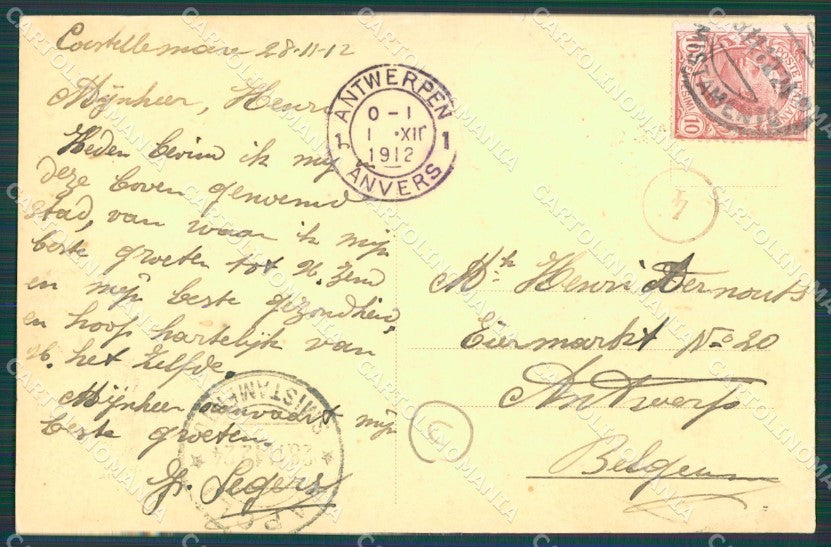 Castellemare 28-11-12
Mynheer, Henri
Heden bevin ik mij
deze boven genoemd
stad, van waar ik mijn
beste groeten tot U. Zend
en mijn beste gezondheid,
en hoop hartelijk van
U. het Zelfde.
Mijnheer aanvaardt mijn
beste groeten
Segers
ANTWERPEN
0-1
1 XII
1912
1 1
ANVERS
POSTE ITALIANE
10 10
4
5
Mr. Henri Aernouts
Eiermarkt No 20
Antwerp
Belgium
SMISTAMENTO
CARTOLINOMANIA